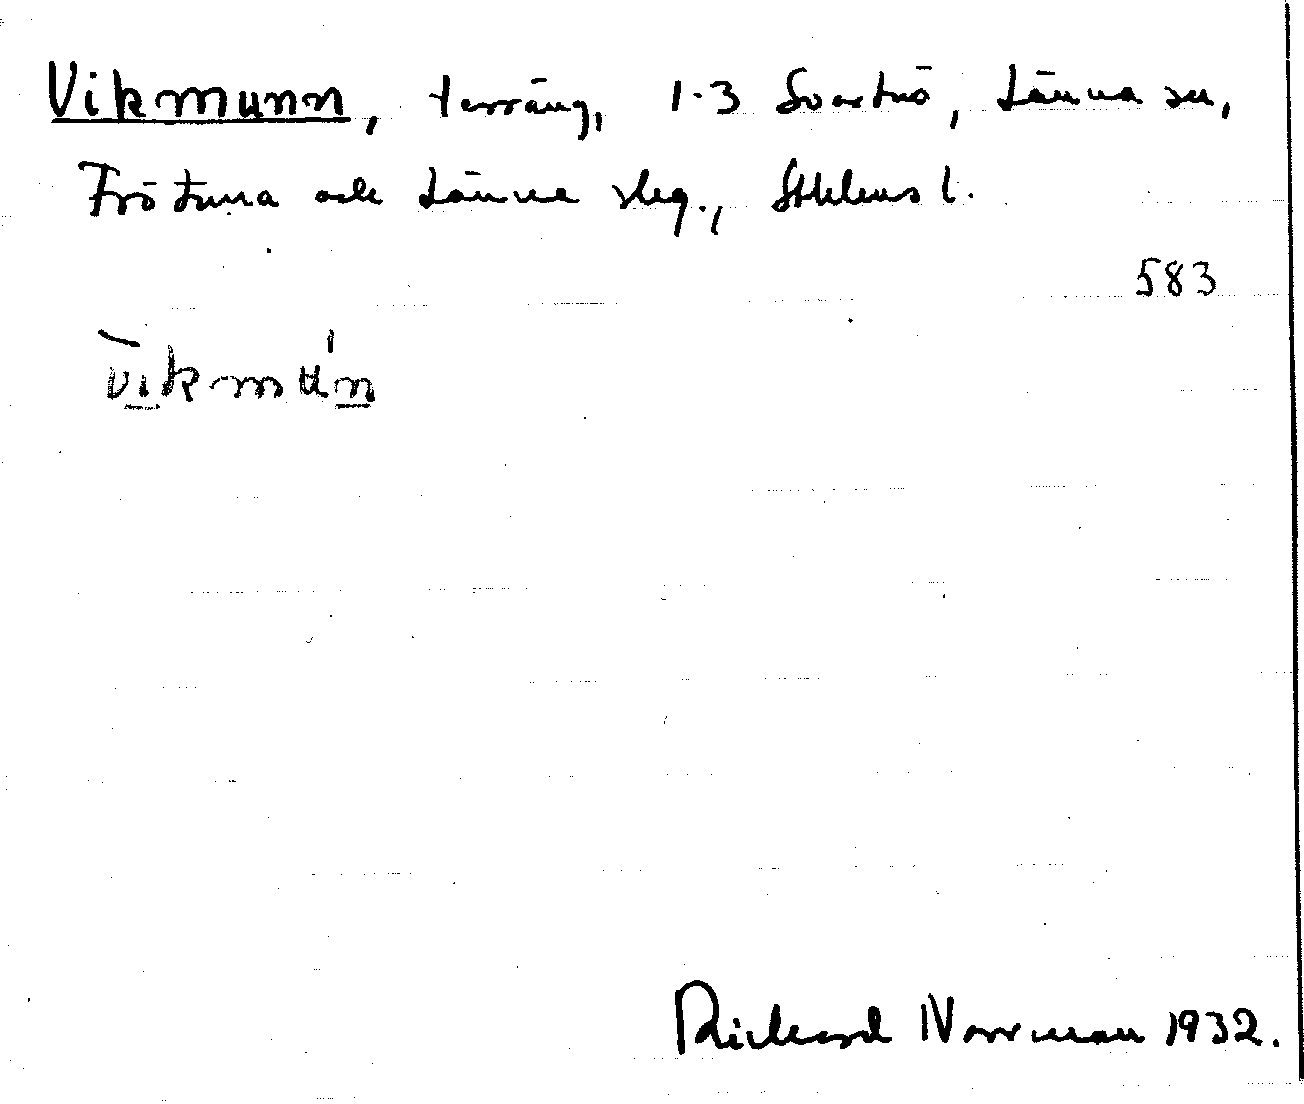 Vikmunn, terräng, 1-3 Svartnö, Länna sn,
Frötuna och Länna slg., Sthlms l.
583
vikmun
Rickard Norrman 1932.